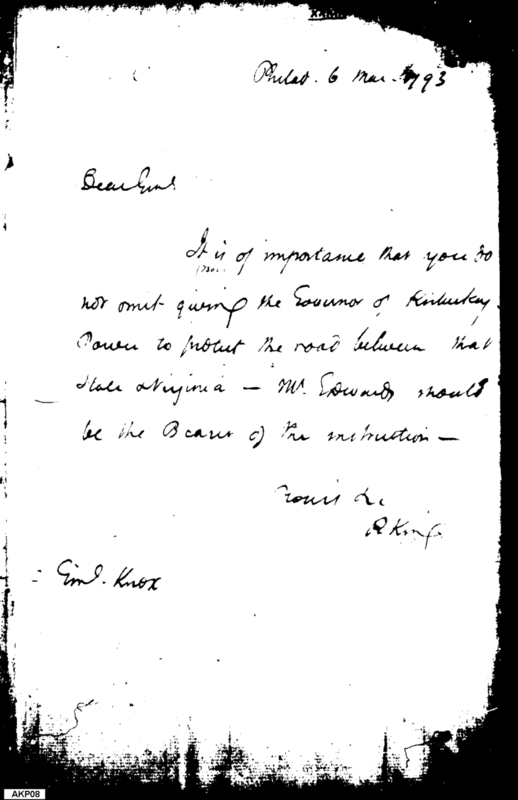 Philad. 6 Mar. 1793
Dear Genl.
It is of importance that you do
not omit giving the Governor of Kentucky
Power to protect the road between that
State & Virginia — Mr. Edwards should
be the Bearer of the instruction —
Yours &c
R King
Genl. Knox
AKP08